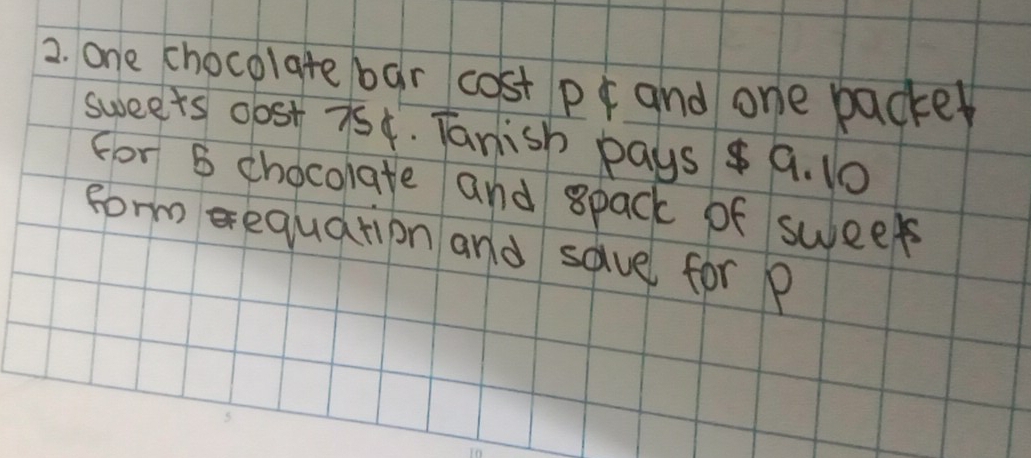 2. One chocolate bar cost p ¢ and one packet
sweets cost 75¢. Tanish pays $ 9.10
for 5 chocolate and 8pack of sweets
form equation and solve for p
5
10